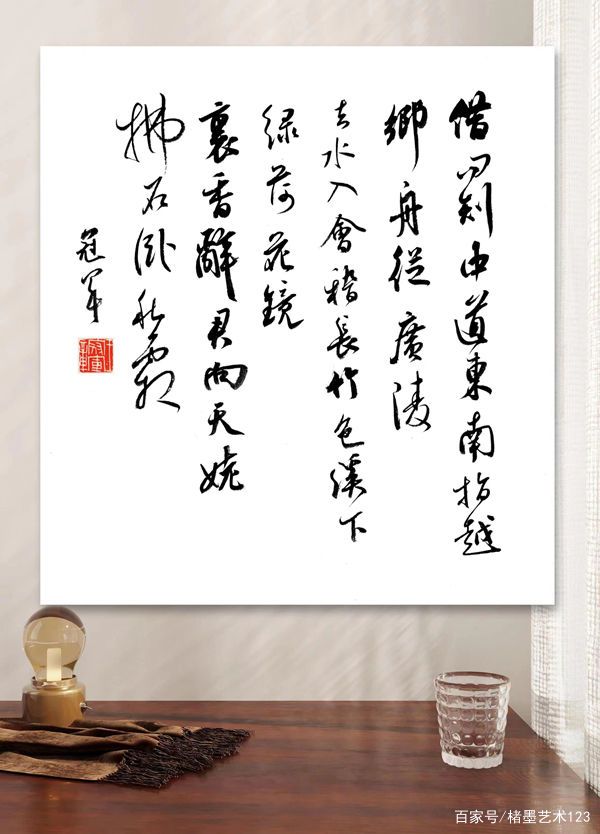 借问剡中道東南指越
鄉舟從廣陵
去水入會稽長竹色溪下
绿荷花鏡
裏香辭君向天姥
拂石卧秋霜
冠军
百家号/楮墨艺术123